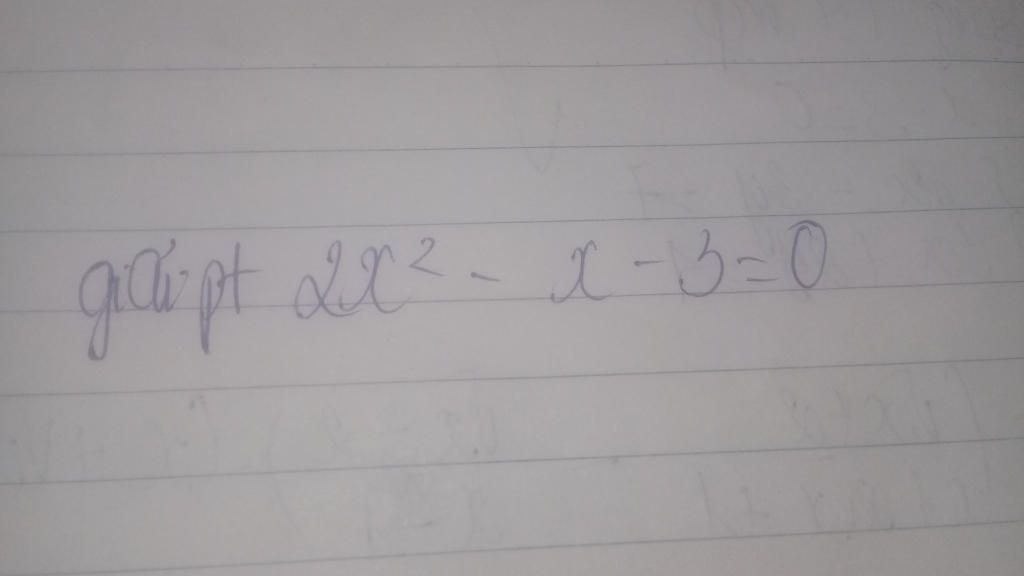 giải pt 2x² - x - 3 = 0